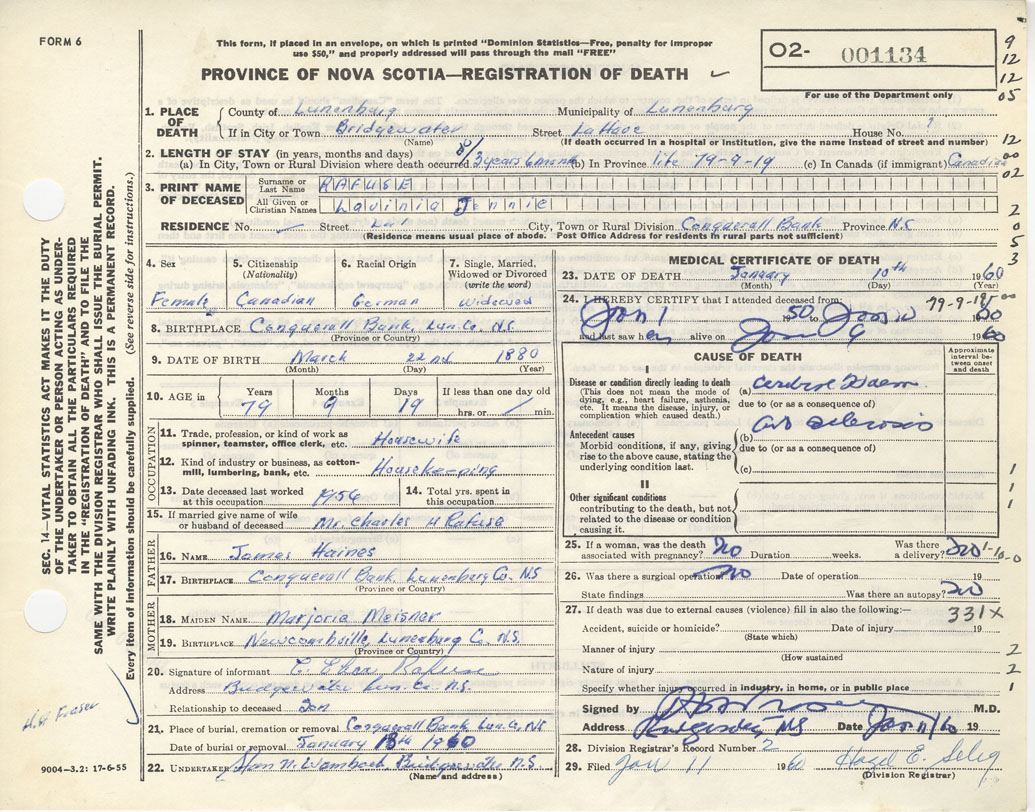 FORM 6
This form, if placed in an envelope, on which is printed "Dominion Statistics—Free, penalty for improper
use $50," and properly addressed will pass through the mail "FREE"
PROVINCE OF NOVA SCOTIA—REGISTRATION OF DEATH
O2- 001134
For use of the Department only
9
12
12
05
1. PLACE OF DEATH
County of Lunenburg Municipality of Lunenburg
If in City or Town Bridgewater Street La Have House No. ?
(Name) (If death occurred in a hospital or institution, give the name instead of street and number)
12
00
02
2. LENGTH OF STAY (in years, months and days)
(a) In City, Town or Rural Division where death occurred 3 years 6 month (b) In Province life 79-9-19 (c) In Canada (if immigrant) Canadian
3. PRINT NAME OF DECEASED
Surname or Last Name RAFUSE
All Given or Christian Names Lavinia Jennie
2
0
5
3
RESIDENCE No. Street City, Town or Rural Division Conquerall Bank Province N.S.
(Residence means usual place of abode. Post Office Address for residents in rural parts not sufficient)
4. Sex
Female
5. Citizenship
(Nationality)
Canadian
6. Racial Origin
German
7. Single, Married, Widowed or Divorced
(write the word)
Widowed
8. BIRTHPLACE Conquerall Bank, Lun. Co. N.S.
(Province or Country)
9. DATE OF BIRTH March 22nd 1880
(Month) (Day) (Year)
10. AGE in
Years Months Days If less than one day old
79 9 19 hrs. or min.
OCCUPATION
11. Trade, profession, or kind of work as spinner, teamster, office clerk, etc. Housewife
12. Kind of industry or business, as cotton-mill, lumbering, bank, etc. Housekeeping
13. Date deceased last worked at this occupation 1956
14. Total yrs. spent in this occupation
15. If married give name of wife or husband of deceased Mr. Charles H Rafuse
FATHER
16. NAME James Haines
17. BIRTHPLACE Conquerall Bank, Lunenburg Co. N.S
(Province or Country)
MOTHER
18. MAIDEN NAME Marjoria Meisner
19. BIRTHPLACE Newcombville, Lunenburg Co. N.S.
(Province or Country)
20. Signature of informant Rafuse
Address Bridgewater Lun. Co. N.S.
Relationship to deceased Son
21. Place of burial, cremation or removal Conquerall Bank Lun. Co. N.S
Date of burial or removal January 13th 1960
22. UNDERTAKER Bridgewater N.S.
(Name and address)
9004-3.2: 17-6-55
MEDICAL CERTIFICATE OF DEATH
23. DATE OF DEATH January 10th 1960
(Month) (Day) (Year)
79-9-19
24. I HEREBY CERTIFY that I attended deceased from:
Jan 1 1950 to Jan 1960
and last saw her alive on Jan 9 1960
CAUSE OF DEATH
Approximate interval between onset and death
I
Disease or condition directly leading to death
(This does not mean the mode of dying, e.g., heart failure, asthenia, etc. It means the disease, injury, or complication which caused death.)
(a)
due to (or as a consequence of)
Antecedent causes
Morbid conditions, if any, giving rise to the above cause, stating the underlying condition last.
(b) sclerosis
due to (or as a consequence of)
(c)
II
Other significant conditions
contributing to the death, but not related to the disease or condition causing it.
1
1
1
1
25. If a woman, was the death associated with pregnancy? no Duration weeks. Was there a delivery? no
26. Was there a surgical operation no Date of operation 19
State findings Was there an autopsy? no
27. If death was due to external causes (violence) fill in also the following:— 331X
Accident, suicide or homicide? Date of injury 19
(State which)
Manner of injury 2
(How sustained
Nature of injury 2
Specify whether injury occurred in industry, in home, or in public place 1
Signed by M.D.
Address Bridgewater, NS Date Jan 11/60 19
28. Division Registrar's Record Number 2
29. Filed Jan 11 1960 Hazel E. Selig
(Division Registrar)
SEC. 14—VITAL STATISTICS ACT MAKES IT THE DUTY
OF THE UNDERTAKER OR PERSON ACTING AS UNDER-
TAKER TO OBTAIN ALL THE PARTICULARS REQUIRED
IN THE "REGISTRATION OF DEATH" AND TO FILE THE
SAME WITH THE DIVISION REGISTRAR WHO SHALL ISSUE THE BURIAL PERMIT.
WRITE PLAINLY WITH UNFADING INK. THIS IS A PERMANENT RECORD.
Every item of information should be carefully supplied. (See reverse side for instructions.)
Fraser